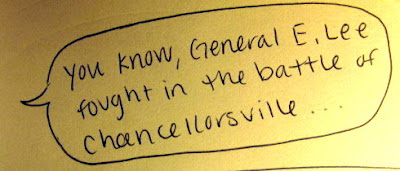 You know, General E. Lee
fought in the battle of
Chancellorsville . . .